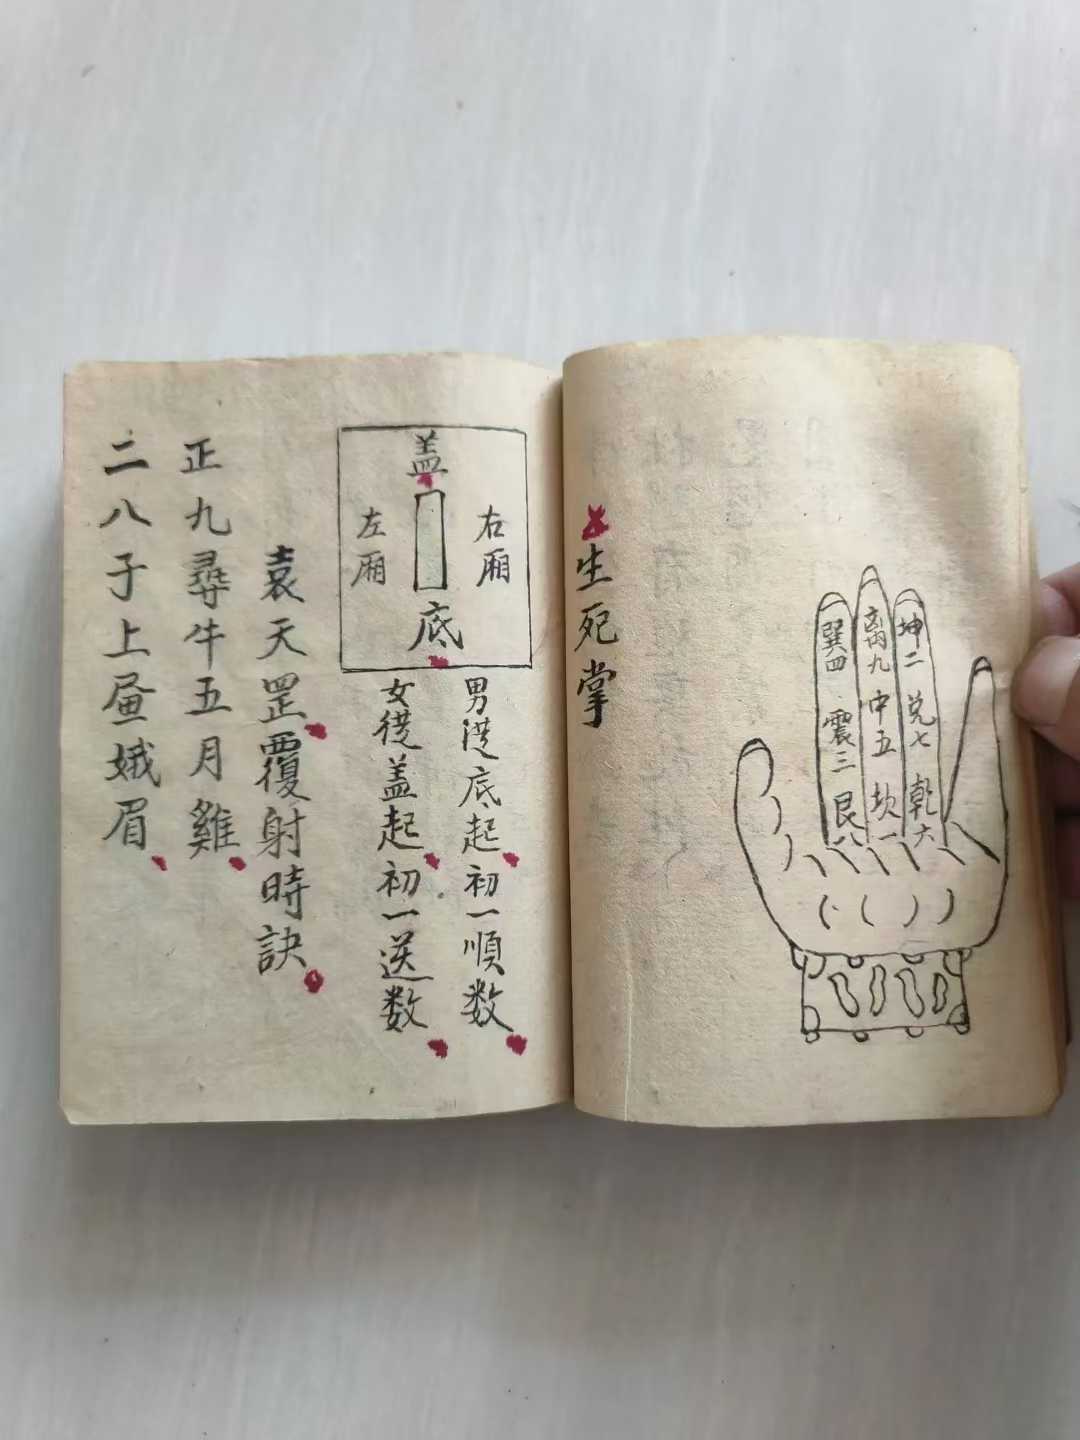 生死掌
坤二 兑七 乾六
离九 中五 坎一
巽四 震三 艮八
盖
右厢
左厢
底
男從底起初一順数
女從盖起初一逆数
袁天罡覆射時訣
正九尋牛五月雞
二八子上昼娥眉